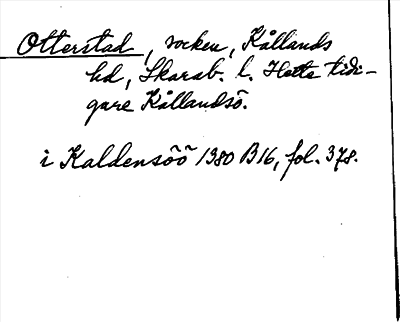 Otterstad, socken, Kållands
hd, Skarab. l. Hette tidi-
gare Kållandsö.
i Kaldensöö 1380 B16, fol. 378.